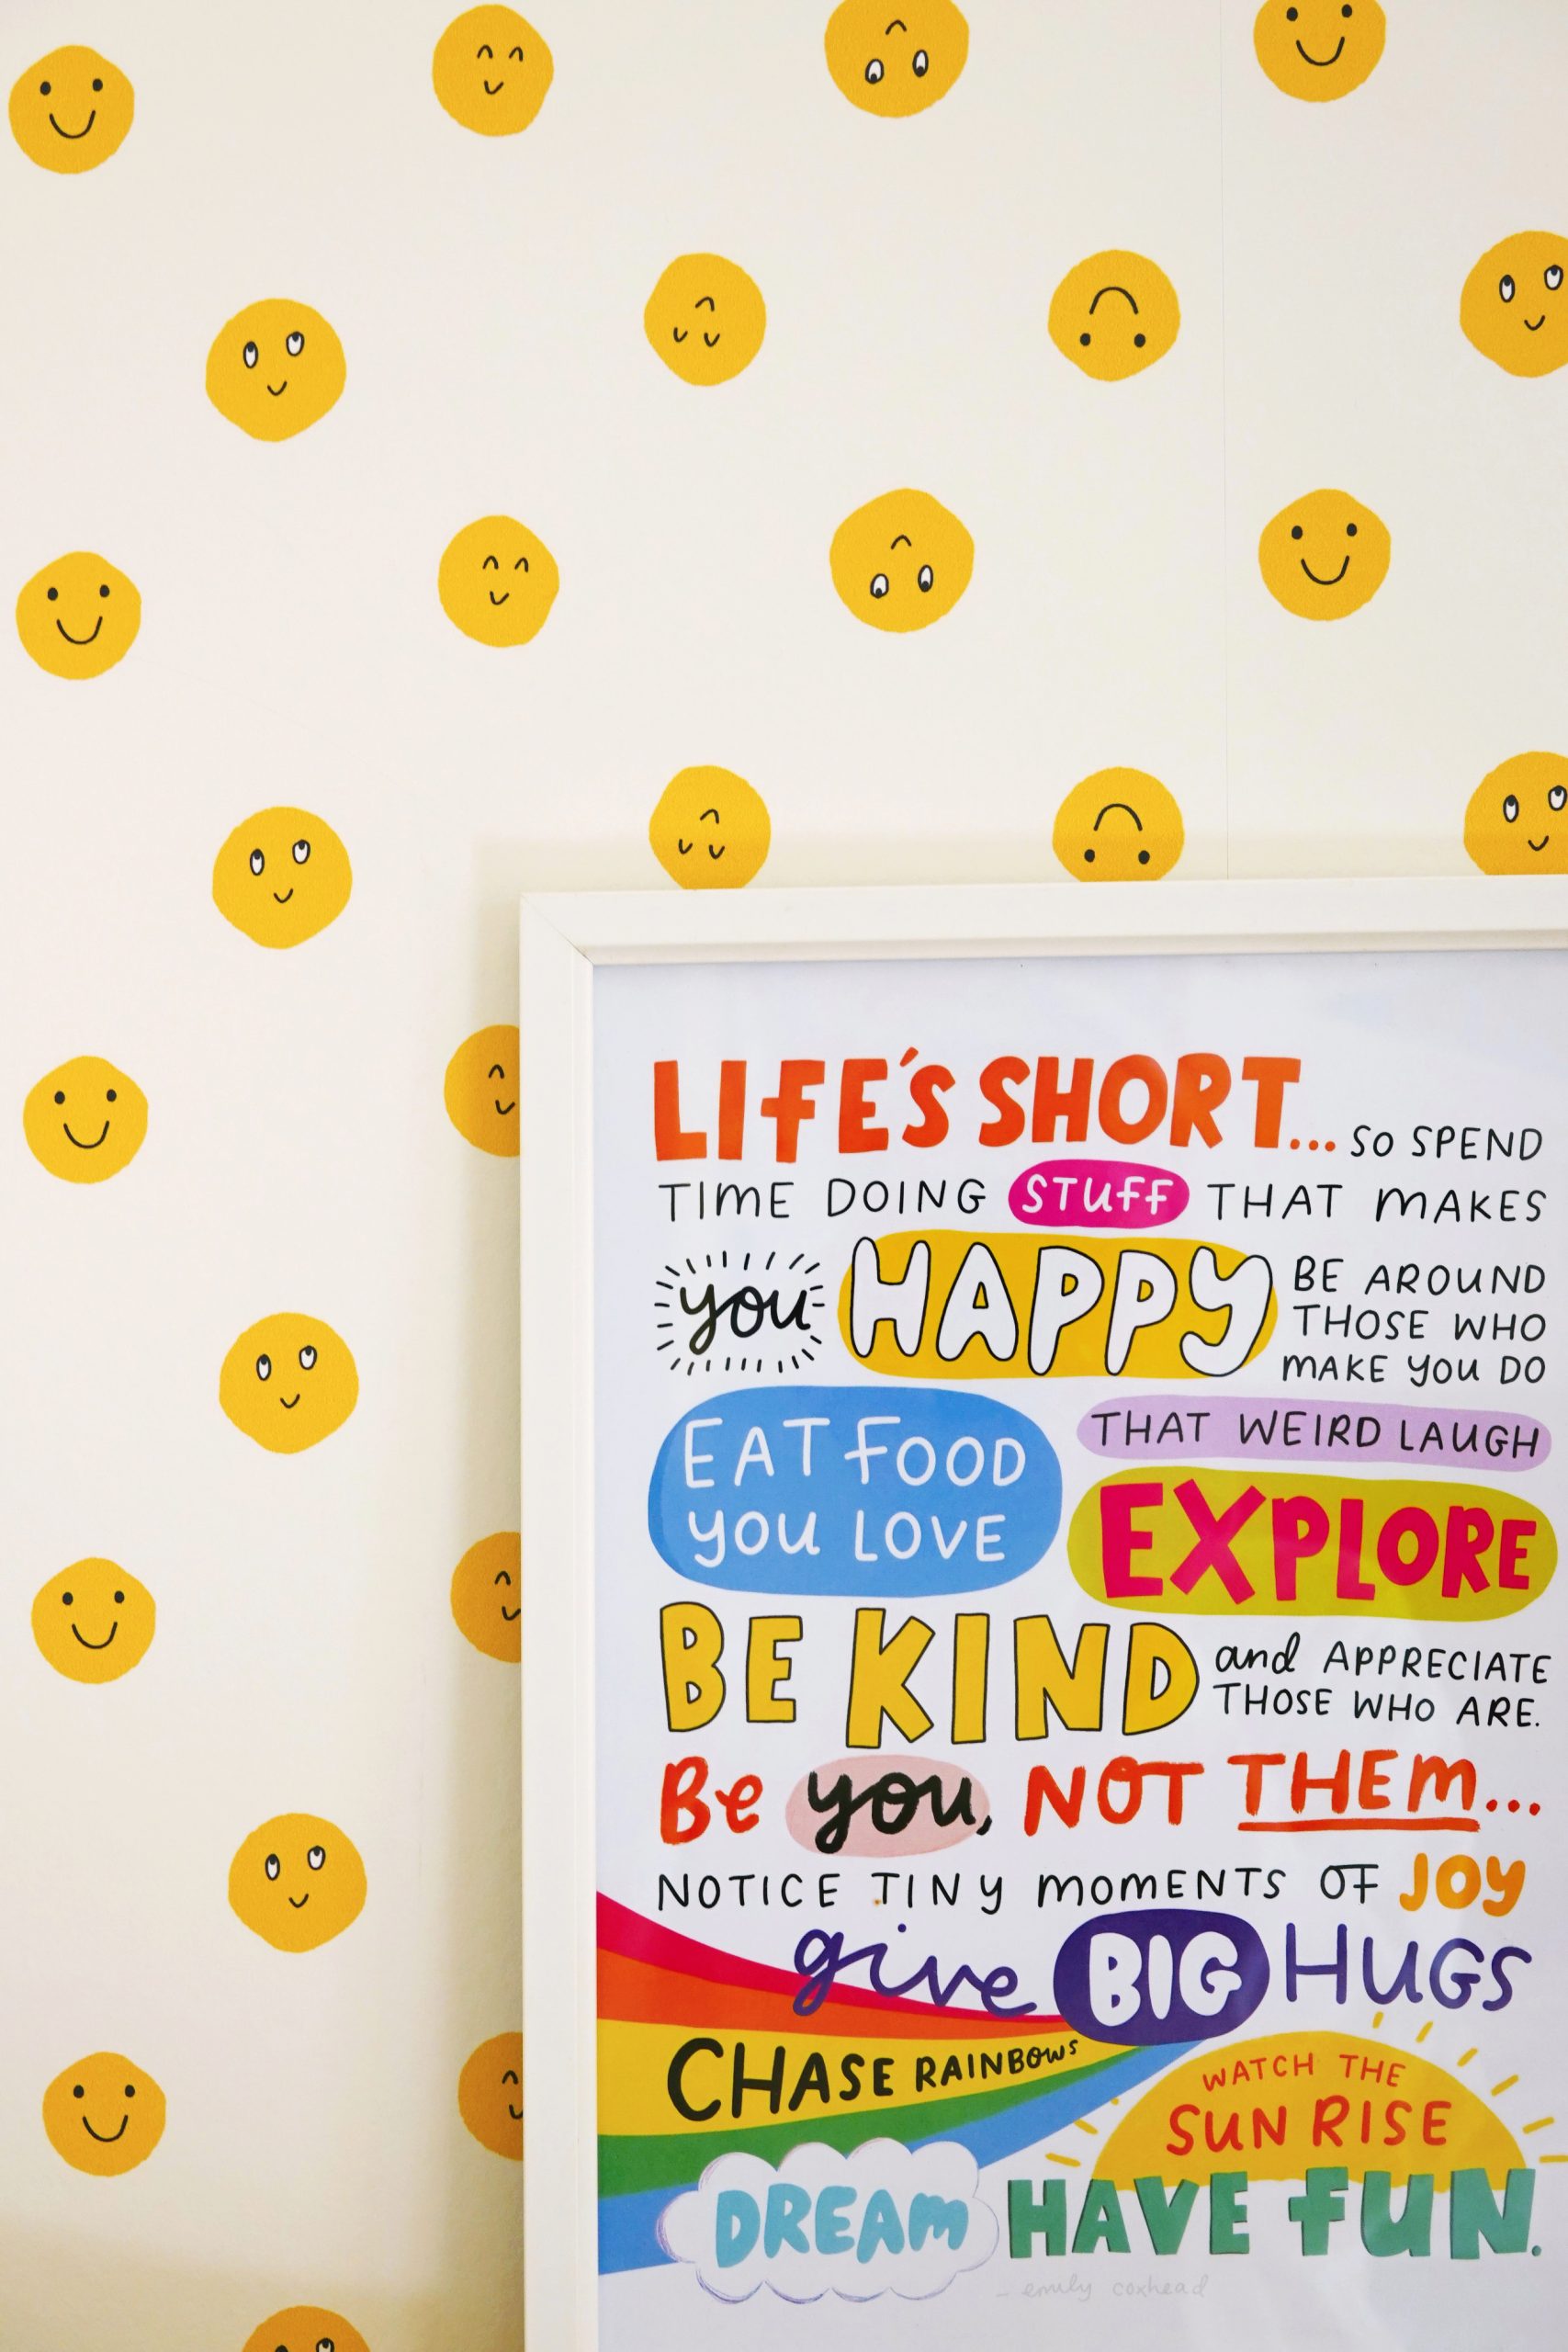 LIFE'S SHORT... SO SPEND
TIME DOING STUFF THAT MAKES
you HAPPY
BE AROUND
THOSE WHO
MAKE YOU DO
THAT WEIRD LAUGH
EAT FOOD
YOU LOVE
EXPLORE
BE KIND
and APPRECIATE
THOSE WHO ARE.
Be you, NOT THEM...
NOTICE TINY MOMENTS OF JOY
give BIG HUGS
CHASE RAINBOWS
WATCH THE
SUN RISE
DREAM HAVE FUN.
- emily coxhead